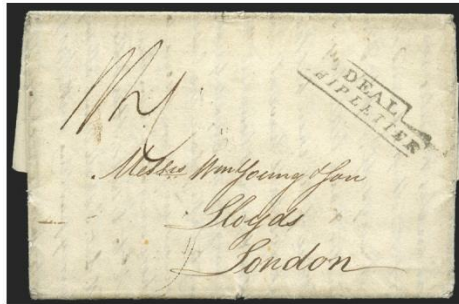 DEAL
SHIP LETTER
Messrs Wm Young & Son
Lloyds
London